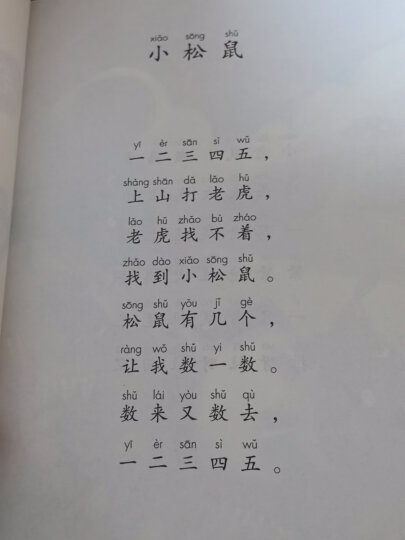 xiǎo sōng shǔ
小松鼠
yī èr sān sì wǔ
一二三四五，
shàng shān dǎ lǎo hǔ
上山打老虎，
lǎo hǔ zhǎo bù zháo
老虎找不着，
zhǎo dào xiǎo sōng shǔ
找到小松鼠。
sōng shǔ yǒu jǐ gè
松鼠有几个，
ràng wǒ shǔ yi shǔ
让我数一数。
shǔ lái yòu shǔ qù
数来又数去，
yī èr sān sì wǔ
一二三四五。